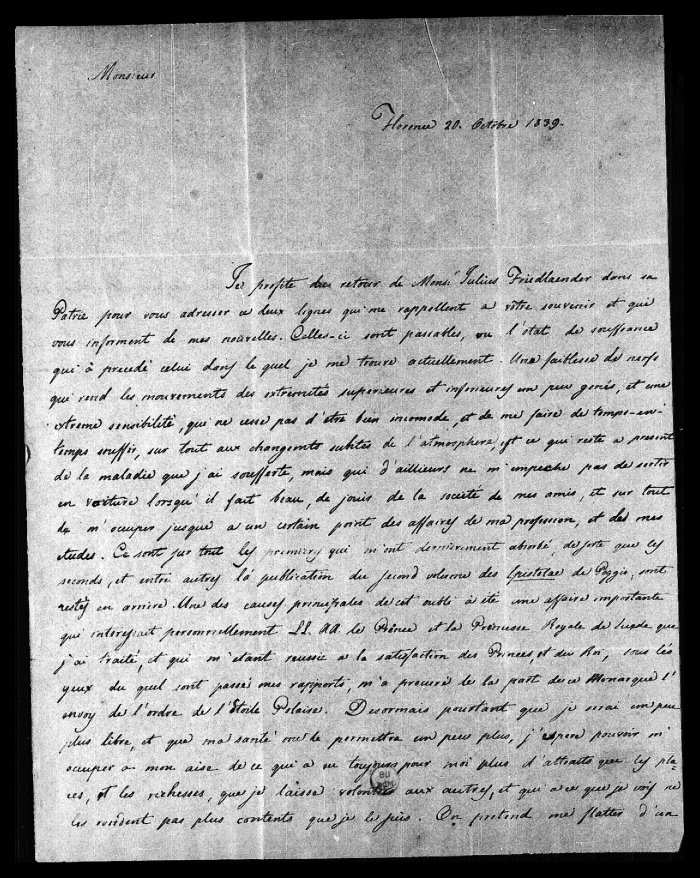 Monsieur
Florence 20. Octobre 1839.
Je profite du retour de Monsr Julius Friedlaender dans sa
Patrie pour vous adresser ce deux lignes qui me rappellent a vôtre souvenir et qui
vous informent de mes nouvelles. Celles-ci sont passables, vu l'etat de souffrance
qui à precedé celui dans le quel je me trouve actuellement. Une faiblesse de nerfs
qui rend les mouvements des extremités superieures et inferieures un peu genés, et une
extreme sensibilité, qui ne cesse pas d'etre bien incomode, et de me faire de temps-en-
temps souffrir, sur tout aux changements subites de l'atmosphere, est ce qui reste a present
de la maladie que j'ai soufferte, mais qui d'ailleurs ne m'empeche pas de sortir
en voiture lorsqu'il fait beau, de jouir de la societé de mes amis, et sur tout
de m'occuper jusque a un certain point des affaires de ma profession, et des mes
etudes. Ce sont sur tout les premiers qui m'ont dernierement absorbé, de sorte que les
seconds, et entre autres la publication du second volume des Epistolae de Poggio, sont
restés en arriere. Une des causes principales de cet oubli à eté une affaire importante
qui interessait personnellement LL. AA. le Prince et la Princesse Royale de Suede que
j'ai traité, et qui m'etant reussie a la satisfaction des Princes, et du Roi, sous les
yeux du quel sont passé mes rapports, m'a procuré de la part de ce Monarque l'
envoy de l'ordre de l'Etoile Polaire. Desormais pourtant que je serai un peu
plus libre, et que ma santé me le permettra un peu plus, j'espere pouvoir m'
occuper a mon aise de ce qui a eu toujours pour moi plus d'attraits que les pla-
ces, et les richesses, que je laisse volontiers aux autres, et qui a ce que je vois ne
les rendent pas plus contents que je le suis. On pretend me flatter d'un